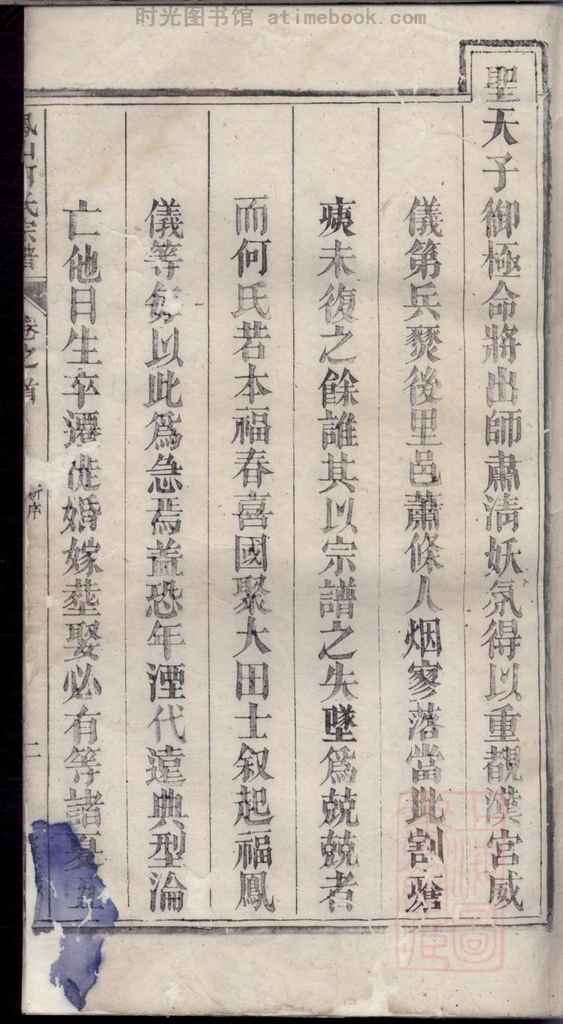 时光图书馆 atimebook.com
聖天子御極命將出師肅淸妖氛得以重覩漢宫威
儀第兵燹後里邑蕭條人烟寥落當此割瘡
痍未復之餘誰其以宗譜之失墜爲兢兢者
而何氏若本福春喜國聚大田士叙起福鳳
儀等毎以此爲急焉盖恐年湮代遠典型淪
亡他日生卒遷徙婚嫁塟娶必有等諸夏五
鳳山何氏宗譜 卷之首 新序 二